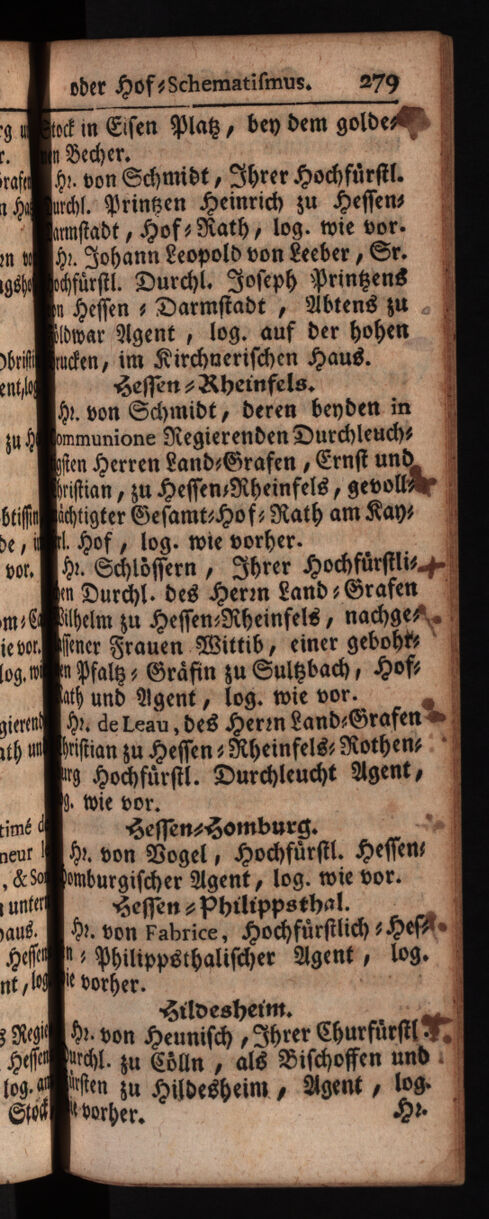 oder Hof-Schematismus. 279
Stock in Eisen Platz, bey dem golde-
nen Becher.
Hr. von Schmidt, Ihrer Hochfürstl.
Durchl. Printzen Heinrich zu Hessen-
Darmstadt, Hof-Rath, log. wie vor.
Hr. Johann Leopold von Leeber, Sr.
Hochfürstl. Durchl. Joseph Printzens
von Hessen-Darmstadt, Abtens zu
Földwar Agent, log. auf der hohen
Brucken, im Kirchnerischen Haus.
Hessen-Rheinfels.
Hr. von Schmidt, deren beyden in
Communione Regierenden Durchleuch-
tigsten Herren Land-Grafen, Ernst und
Christian, zu Hessen-Rheinfels, gevoll-
mächtigter Gesamt-Hof-Rath am Kay-
serl. Hof, log. wie vorher.
Hr. Schlössern, Ihrer Hochfürstli-
chen Durchl. des Herrn Land-Grafen
Wilhelm zu Hessen-Rheinfels, nachge-
lassener Frauen Wittib, einer gebohr-
nen Pfaltz-Gräfin zu Sultzbach, Hof-
Rath und Agent, log. wie vor.
Hr. de Leau, des Herrn Land-Grafen
Christian zu Hessen-Rheinfels-Rothen-
burg Hochfürstl. Durchleucht Agent,
log. wie vor.
Hessen-Homburg.
Hr. von Vogel, Hochfürstl. Hessen-
Homburgischer Agent, log. wie vor.
Hessen-Philippsthal.
Hr. von Fabrice, Hochfürstlich-Hes-
sen-Philippsthalischer Agent, log.
wie vorher.
Hildesheim.
Hr. von Heunisch, Ihrer Churfürstl.
Durchl. zu Cölln, als Bischoffen und
Fürsten zu Hildesheim, Agent, log.
wie vorher. Hr.